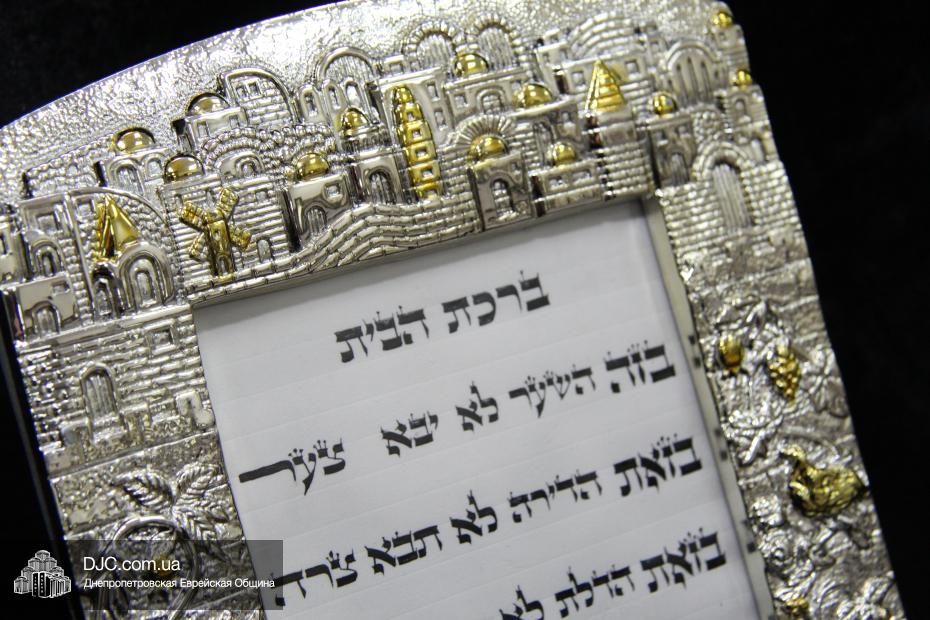 ברכת הבית
בזה השער לא יבא צער
בזאת הדירה לא תבא צרה
בזאת הדלת לא
DJC.com.ua
Днепропетровская Еврейская Община